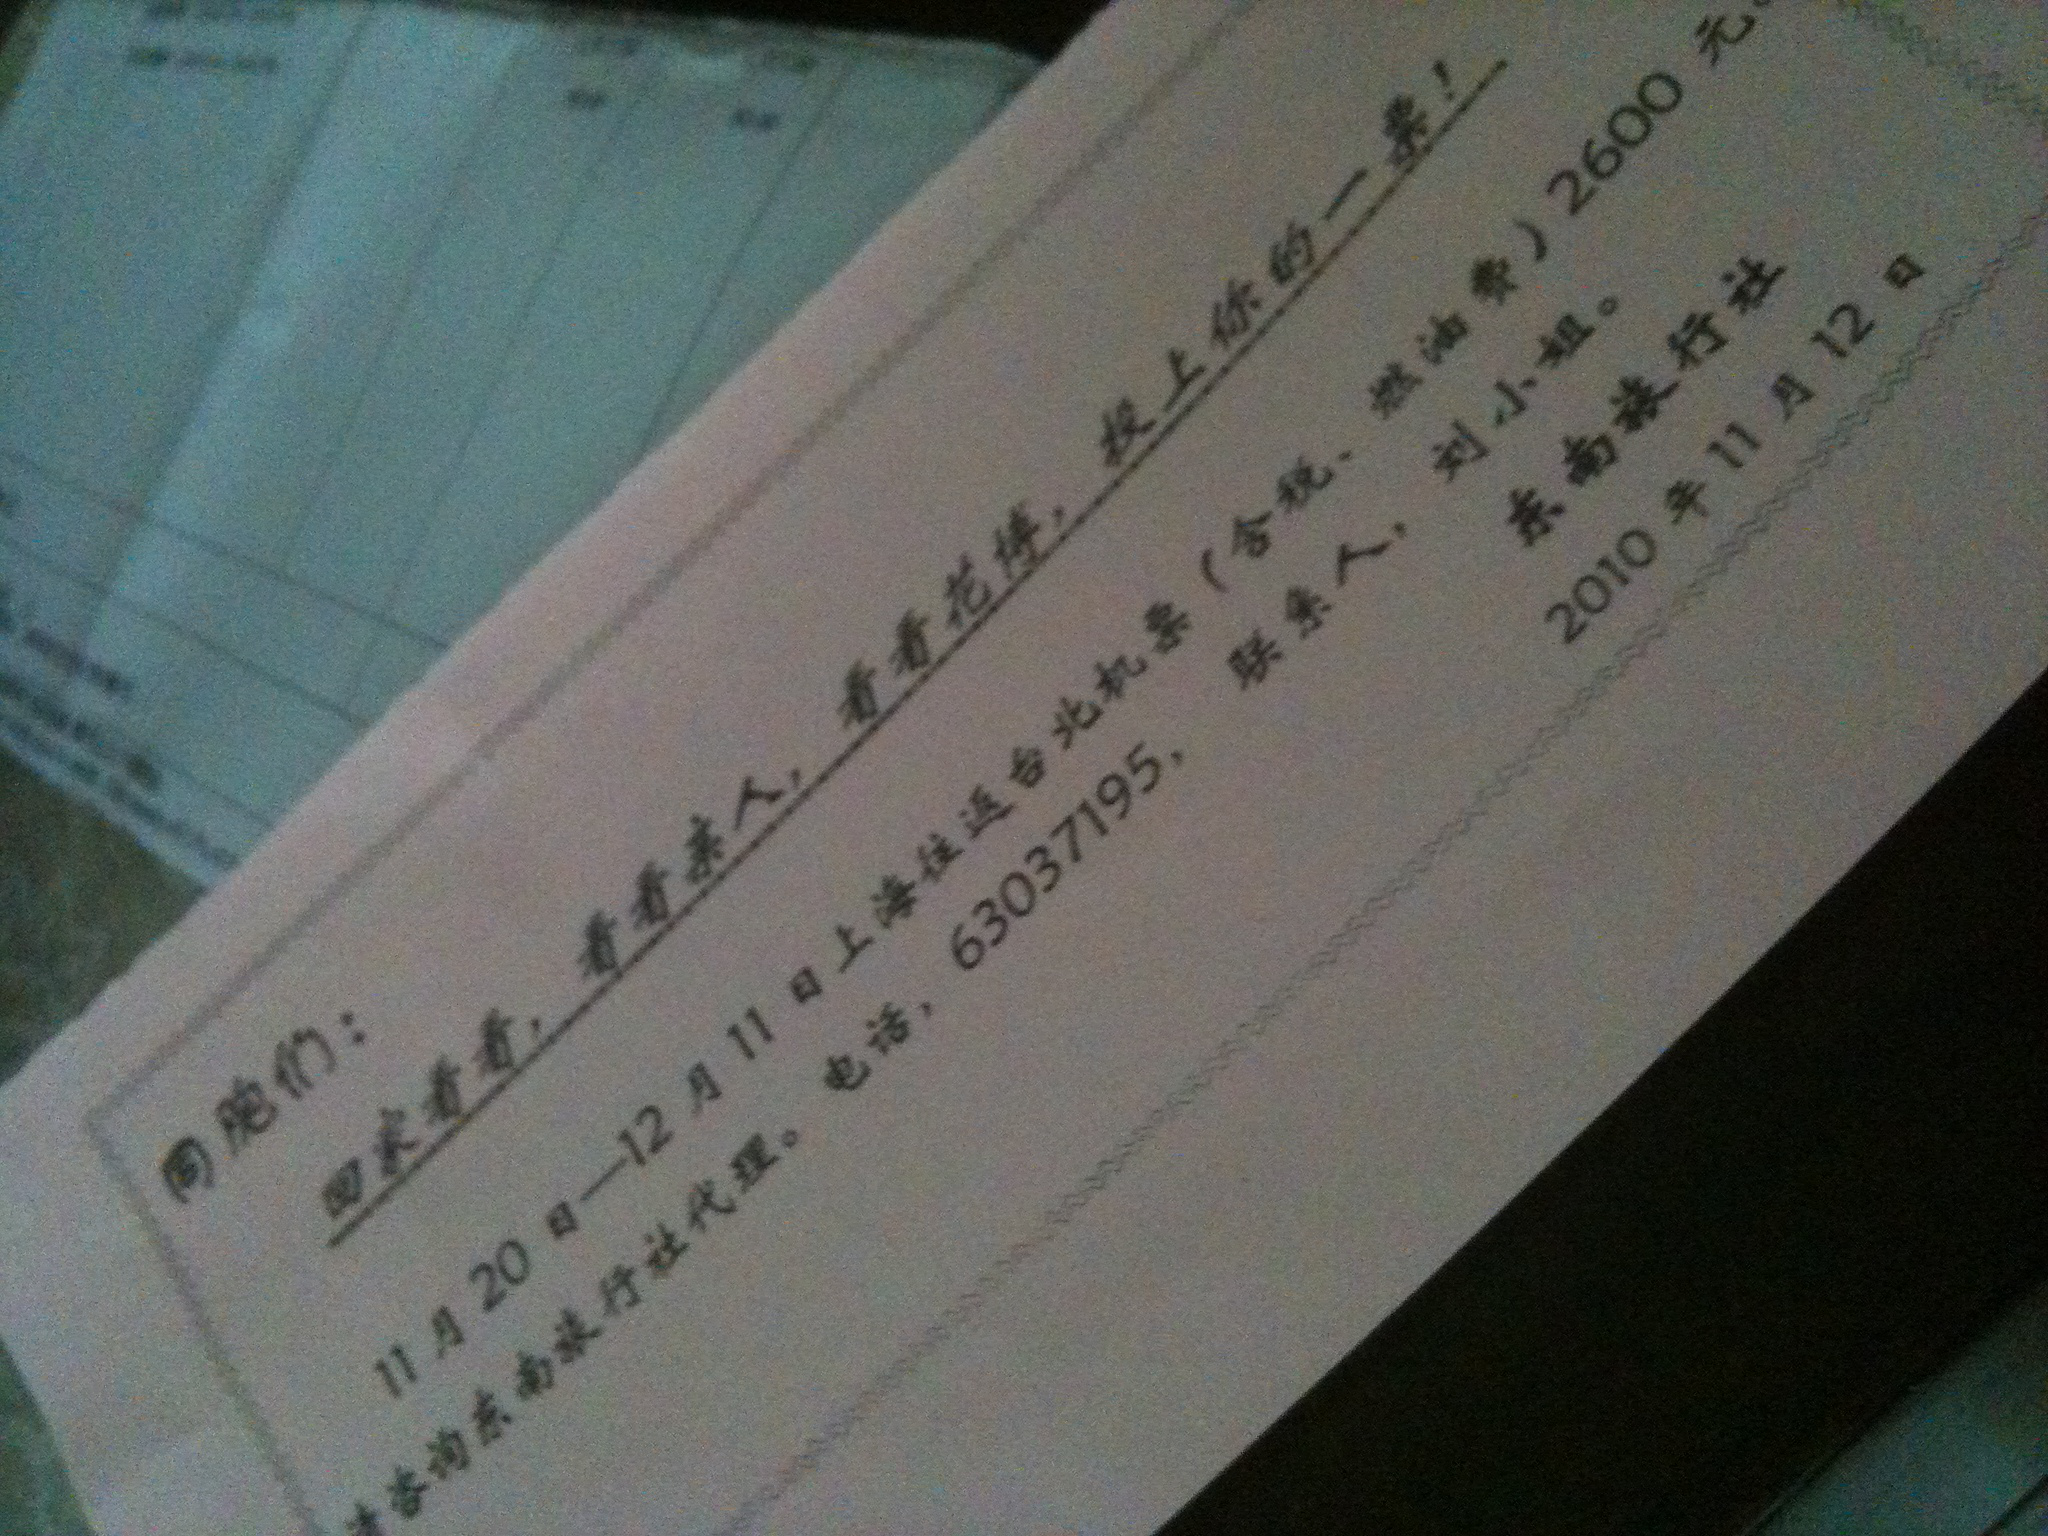 同胞们：
回家看看，看看亲人，看看花博，投上你的一票！
11月20日—12月11日上海往返台北机票（含税、燃油费）2600元。
请咨询东南旅行社代理。电话，63037195，联系人，刘小姐。
东南旅行社
2010年11月12日